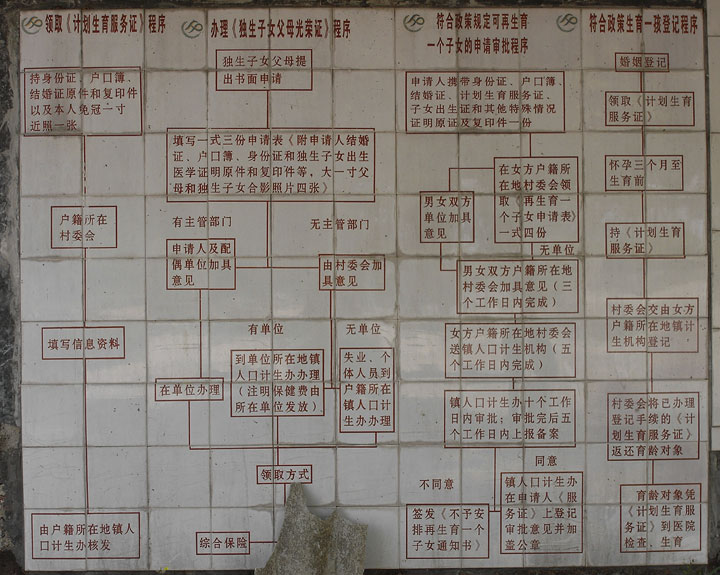 领取《计划生育服务证》程序
持身份证、户口簿、
结婚证原件和复印件
以及本人免冠一寸
近照一张
户籍所在
村委会
填写信息资料
由户籍所在地镇人
口计生办核发
办理《独生子女父母光荣证》程序
独生子女父母提
出书面申请
填写一式三份申请表《附申请人结婚
证、户口簿、身份证和独生子女出生
医学证明原件和复印件等，大一寸父
母和独生子女合影照片四张》
有主管部门
无主管部门
申请人及配
偶单位加具
意见
由村委会加
具意见
有单位
无单位
在单位办理
到单位所在地镇
人口计生办办理
（注明保健费由
所在单位发放）
失业、个
体人员到
户籍所在
镇人口计
生办办理
领取方式
综合保险
符合政策规定可再生育
一个子女的申请审批程序
申请人携带身份证、户口簿、
结婚证、计划生育服务证、
子女出生证和其他特殊情况
证明原证及复印件一份
男女双方
单位加具
意见
在女方户籍所
在地村委会领
取《再生育一
个子女申请表》
一式四份
无单位
男女双方户籍所在地
村委会加具意见（三
个工作日内完成）
女方户籍所在地村委会
送镇人口计生机构（五
个工作日内完成）
镇人口计生办十个工作
日内审批；审批完后五
个工作日内上报备案
不同意
同意
签发《不予安
排再生育一个
子女通知书》
镇人口计生办
在申请人《服
务证》上登记
审批意见并加
盖公章
符合政策生育一孩登记程序
婚姻登记
领取《计划生育
服务证》
怀孕三个月至
生育前
持《计划生育
服务证》
村委会交由女方
户籍所在地镇计
生机构登记
村委会将已办理
登记手续的《计
划生育服务证》
返还育龄对象
育龄对象凭
《计划生育服
务证》到医院
检查、生育